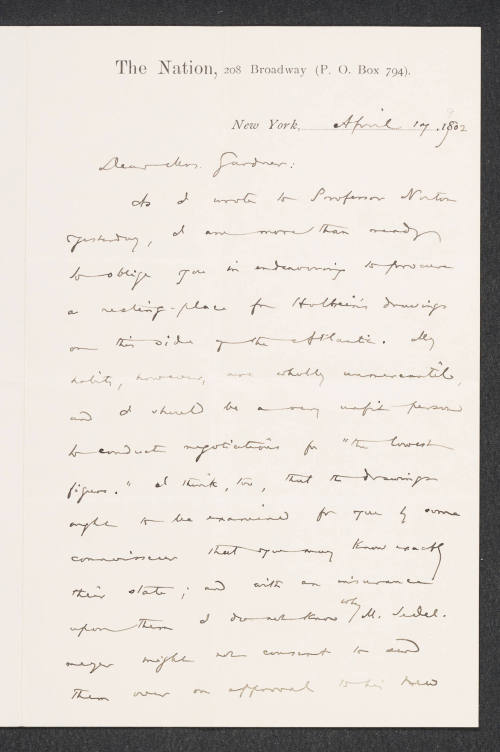 The Nation, 208 Broadway (P. O. Box 794).
New York, April 17, 1902
Dear Mrs. Gardner:
As I wrote to Professor Norton
yesterday, I am more than ready
to oblige you in endeavoring to procure
a resting-place for Holbein's drawings
on this side of the Atlantic. My
habits, however, are wholly unmercantile,
and I should be a very unfit person
to conduct negotiations for "the lowest
figures." I think, too, that the drawings
ought to be examined for you by some
connoisseur that you may know exactly
their state; and with an insurance
upon them I do not know why M. Sedel-
meyer might not consent to send
them over on approval to his New